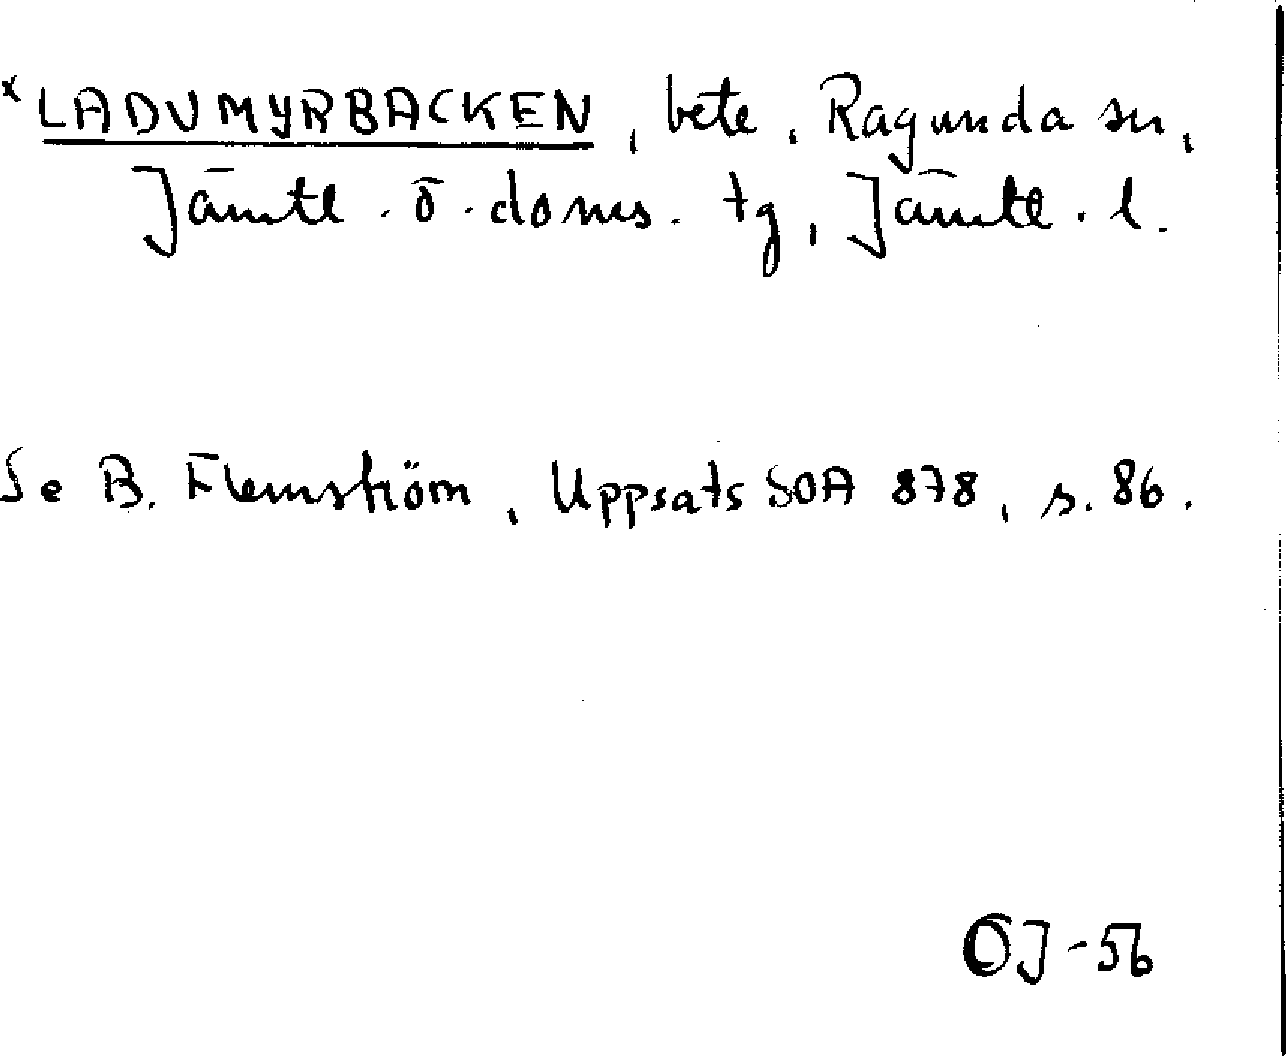 x LADUMYRBACKEN, bete, Ragunda sn,
Jämtl. ö. doms. tg, Jämtl. l.
Se B. Flemström, Uppsats SOA 878, s. 86.
ÖJ-56